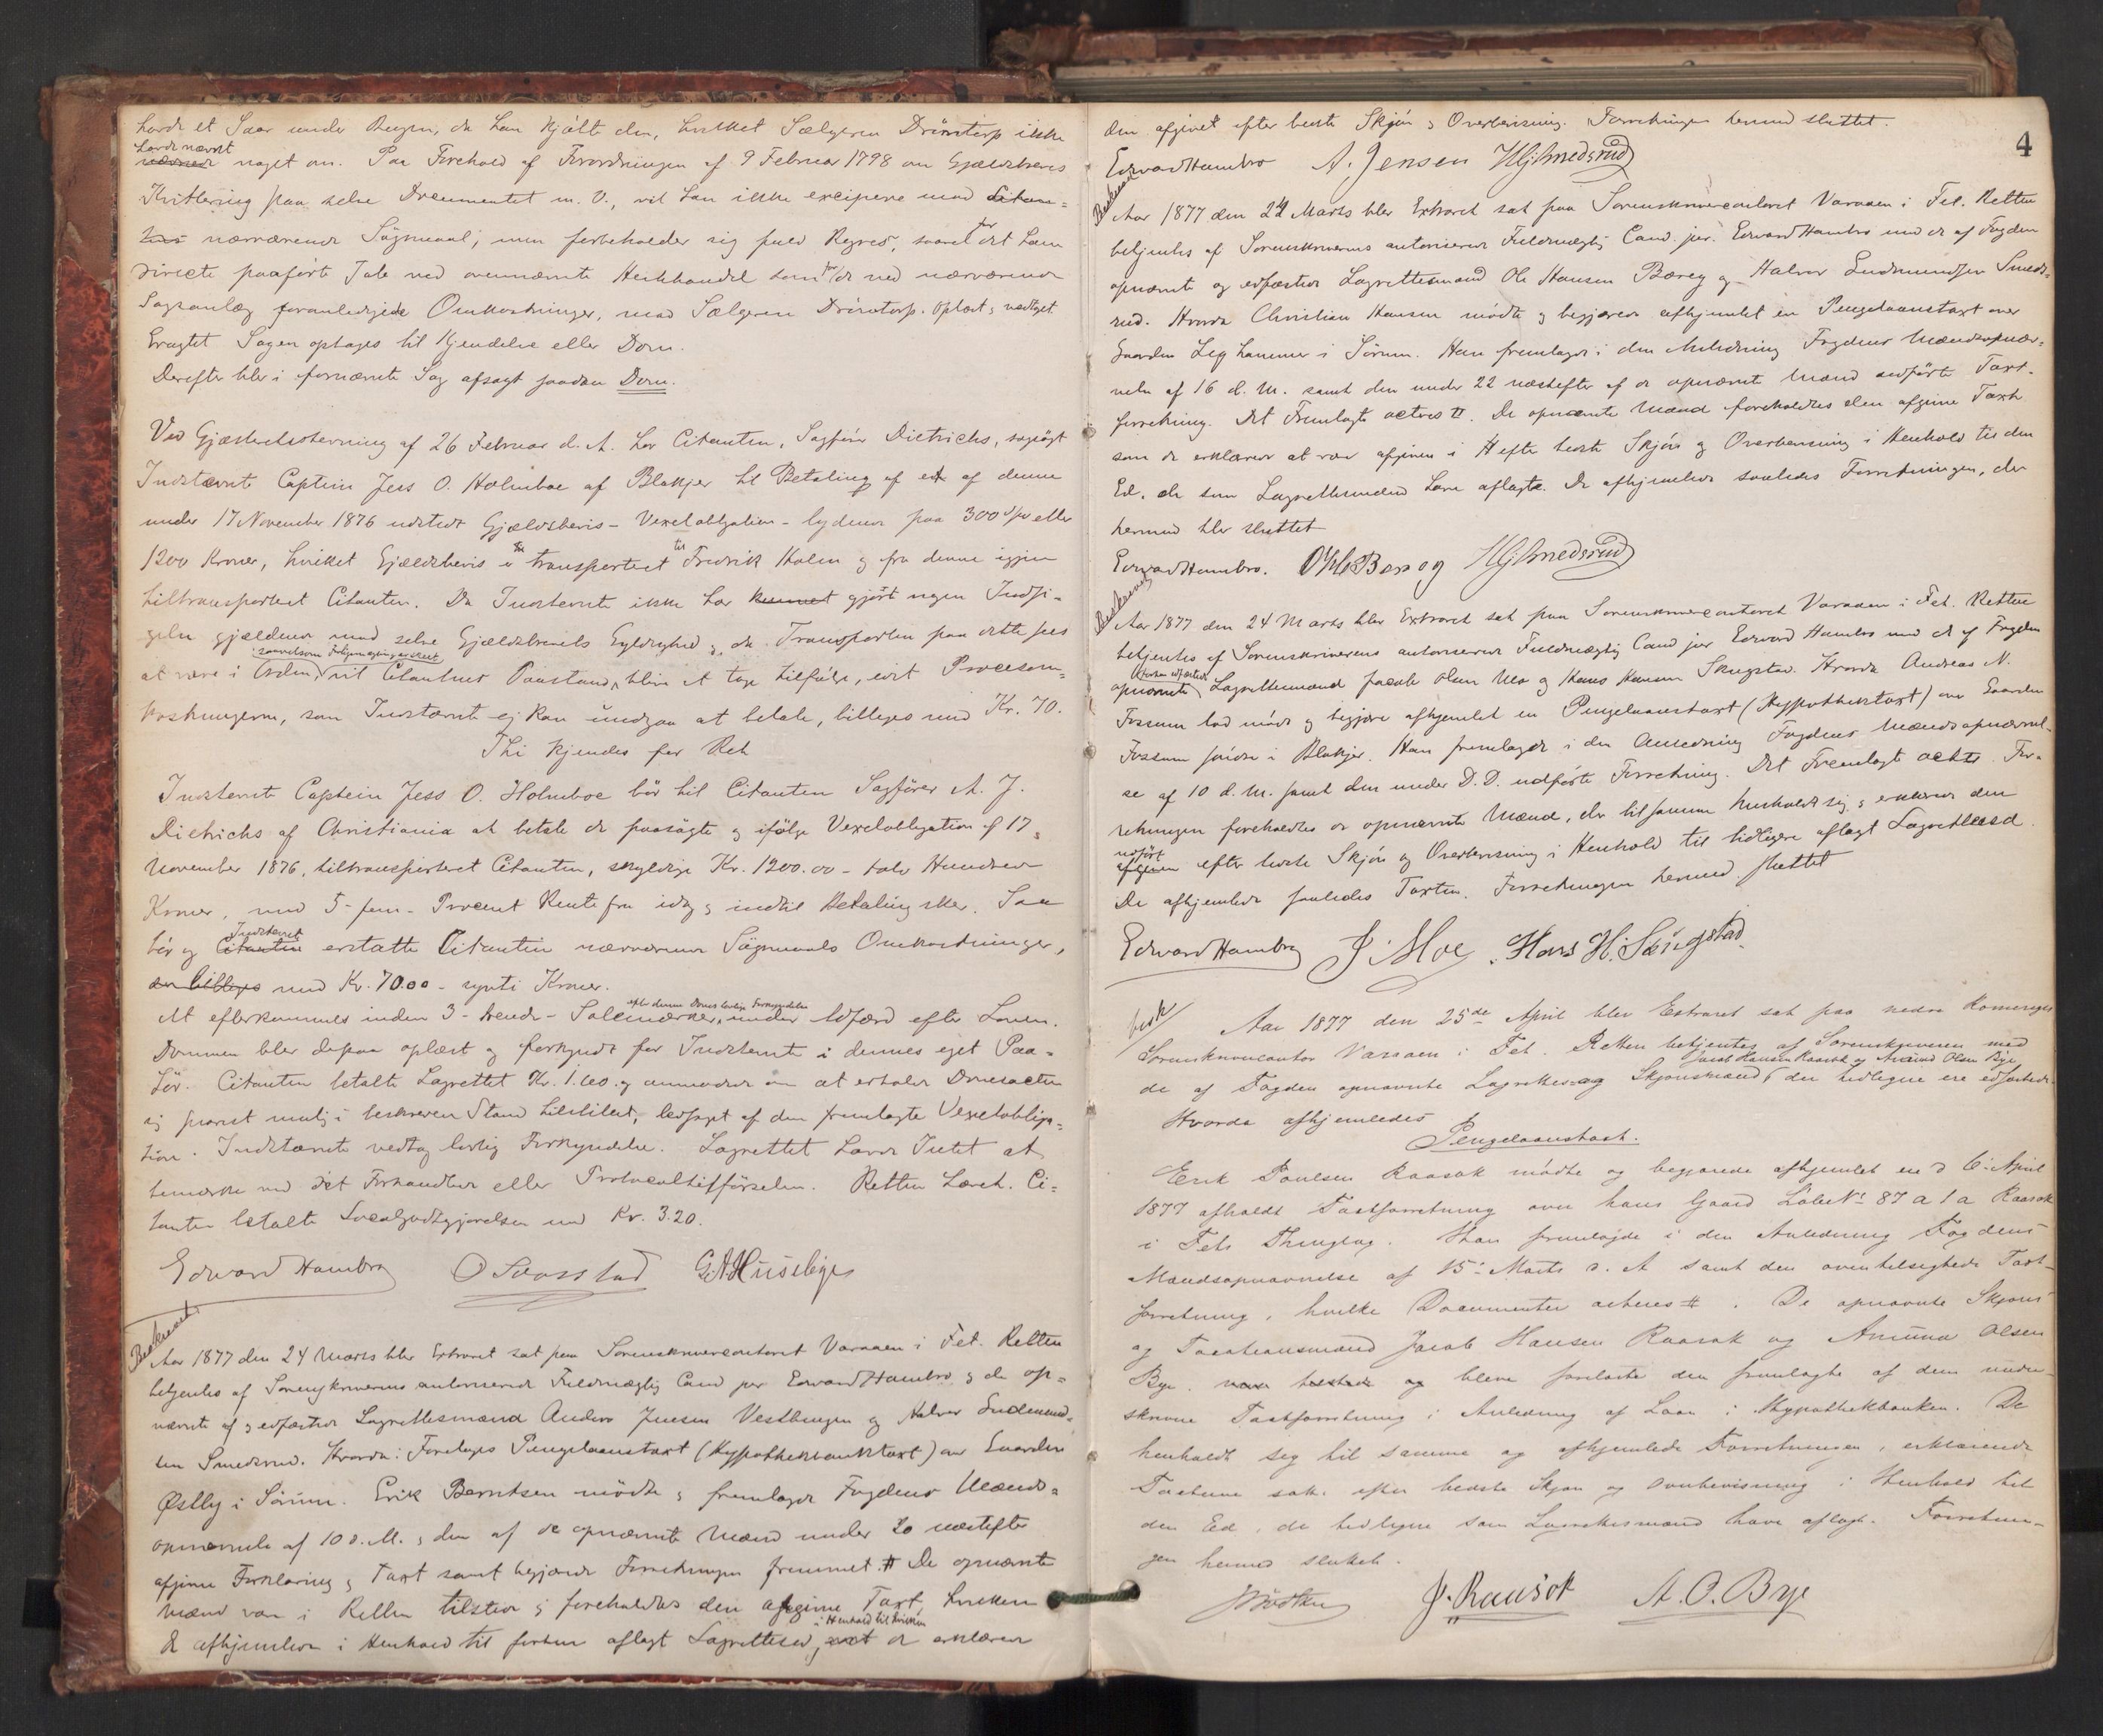 havde et Saar under Bugen, da han kjøbte den, hvilket Sælgeren Drömtorp ikke
havde nævnt
nævned noget om. Paa Forehold af Forordningen af 9 Februar 1798 om Gjældsbrevs
Kvittering paa selve Documentet m. V., vil han ikke excipere mod Citan-
tens nærværende Søgmaal, men forbeholder sig fuld Regres, saavel for det ham
directe paaførte Tab ved ovennævnte Hestehandel som for de ved nærværende
Sagsanlæg foranledigede Omkostninger, mod Sælgeren Drömtorp. Oplæst, vedtaget.
Eragtet Sagen optages til Kjendelse eller Dom.
Derefter blev i fornævnte Sag afsagt saadan Dom.
Ved Gjæsteretsstevning af 26 Februar d. A. har Citanten, Sagfører Dietrichs, sagsøgt
Indstævnte Captein Jess O. Holmboe af Blakjer til Betaling af et af denne
under 17 November 1876 udstedt Gjældsbevis - Vexelobligation - lydende paa 300 Spd eller
1200 Kroner, hvilket Gjældsbevis er transporteret til Fredrik Holm og fra denne igjen
tiltransporteret Citanten. Da Indstevnte ikke har kunnet gjort nogen Indsi-
gelse gjældende mod selve Gjældsbrevets Gyldighed og da Transporten paa dette sees
at være i Orden, vil Citantens Paastand blive at tage tilfølge, idet Procesom-
kostningerne, som Indstævnte ej kan undgaa at betale, billiges med Kr. 70.
Thi kjendes for Ret
Indstevnte Captein Jess O. Holmboe bör til Citanten Sagfører A. J.
Dietrichs af Christiania at betale de paasøgte og ifølge Vexelobligation af 17
November 1876, tiltransporteret Citanten, skyldige Kr. 1200.00 - tolv Hundrede
Kroner, med 5 - fem - Procent Rente fra idag og indtil Betaling sker. Saa
Indstevnte
bör og Citanten erstatte Citanten nærværende Søgmaals Omkostninger,
der billiges med Kr. 70.00 - sytti Kroner.
efter denne Doms lovlige Forkyndelse
At efterkommes inden 3 - trende - Solemærker, under Adfærd efter Loven.
Dommen blev derpaa oplæst og forkyndt for Indstevnte i dennes eget Paa-
hør. Citanten betalte Lagrettet Kr. 1.60. og anmodede om at erholde Domsacten
sig snarest mulig i beskreven Stand tilstillet, ledsaget af den fremlagte Vexelobliga-
tion. Indstævnte vedtog lovlig Forkyndelse. Lagrettet havde Intet at
bemærke ved det Forhandlede eller Protocoltilførselen. Retten hævet. Ci-
tanten betalte Localgodtgjørelsen med Kr. 3.20.
Edward Hambro
Beskrevet
Aar 1877 den 24 Marts blev Extraret sat paa Sorenskrivercontoret Varaaen i Fet. Retten
betjentes af Sorenskriverens autoriserede Fuldmægtig Cand jur Edward Hambro og de op-
nævnte og edfæstede Lagrettesmænd Anders Jensen Vestbyengen og Halvor Gudmund-
sen Smedsrud. Hvorda: Foretages Pengelaanstaxt (Hypothekbanktaxt) over Gaarden
Østby i Sørum. Erik Berntsen mødte og fremlagde Fogdens Mænds-
opnævnelse af 10 d. M. og den af de opnævnte Mænd under 20 næstefter
afgivne Forklaring og Taxt samt begjærede Forretningen fremmet. # De opnævnte
Mænd var i Retten tilstede og foreholdtes den afgivne Taxt, hvilken
i Henhold til hvilken
de afhjemlede i Henhold til forhen aflagt Lagrettesed, samt de erklærede
4
den afgivet efter bedste Skjøn og Overbevisning. Forretningen hermed sluttet.
Edward Hambro A. Jensen HGSmedsrud
Beskrevet
Aar 1877 den 24 Marts blev Extraret sat paa Sorenskrivercontoret Varaaen i Fet. Retten
betjentes af Sorenskriverens autoriserede Fuldmægtig Cand. jur. Edward Hambro med de af Fogden
opnævnte og edfæstede Lagrettesmænd Ole Hansen Berey og Halvor Gudmundsen Smeds-
rud. Hvorda Christian Hansen mødte og begjærede afhjemlet en Pengelaanstaxt over
Gaarden Leghammer i Sørum. Han fremlagde i den Anledning Fogdens Mændsopnæv-
nelse af 16 d. M. samt den under 22 næstefter af de opnævnte Mænd udførte Taxt-
forretning. Det Fremlagte acteres #. De opnævnte Mænd foreholdtes den afgivne Taxt
som de erklærede at være afgiven efter bedste Skjøn og Overbevisning i Henhold til den
Ed, de som Lagrettesmænd have aflagt. De afhjemlede saaledes Forretningen, der
hermed blev sluttet
Edward Hambro. HGSmedsrud
Beskrevet
Aar 1877 den 24 Marts blev Extraret sat paa Sorenskrivercontoret Varaaen i Fet. Retten
betjentes af Sorenskriverens autoriserede Fuldmægtig Cand jur Edward Hambro med de af Fogden
forhen edfæstede
opnævnte Lagrettesmænd Jacob Olsen Moe og Hans Hansen Skugstad. Hvorda Andreas N.
Fossum lod møde og begjære afhjemlet en Pengelaanstaxt (Hypothektaxt) over Gaarden
Fossum søndre i Blakjer. Han fremlagde i den Anledning Fogdens Mændsopnævnel-
se af 10 d. M. samt den under D. D. udførte Forretning. Det Fremlagte acteres #. For-
retningen foreholdtes de opnævnte Mænd, der til samme henholdt sig og erklærede den
udført
afgiven efter bedste Skjøn og Overbevisning i Henhold til tidligere aflagt Lagrettesed.
De afhjemlede saaledes Taxten. Forretningen hermed sluttet
Edward Hambro J. Moe. Hans H. Skugstad.
besk
Aar 1877 den 25de April blev Extraret sat paa nedre Romerriges
Sorenskrivercontor Varaaen i Fet. Retten betjentes af Sorenskriveren med
Jacob Hansen Raasok og Amund Olsen Bye
de af Fogden opnævnte Lagrettes- og Skjønsmænd, der tidligere ere edfæstede.
Hvorda afhjemledes
Pengelaanstaxt.
Erik Poulsen Raasok mødte og begjærede afhjemlet en d. 6. April
1877 afholdt Taxtforretning over hans Gaard Løbe No 87 a 1 a Raasok
i Fets Thinglag. Han fremlagde i den Anledning Fogdens
Mændsopnævnelse af 15. Marts d. A samt den ovenbelsigtede Taxt-
forretning, hvilke Documenter acteres #. De opnævnte Skjøns
og Taxationsmænd Jacob Hansen Raasok og Amund Olsen
Bye. vare tilstede og bleve forelæste den fremlagte af dem under-
skrevne Taxtforretning i Anledning af Laan i Hypothekbanken. De
henholdt seg til samme og afhjemlede Forretningen, erklærende
Taxterne sat efter bedste Skjøn og Overbevisning i Henhold til
den Ed, de tidligere som Lagrettesmænd have aflagt. Forretnin-
gen hermed sluttet.
J. Raasok A. O. Bye